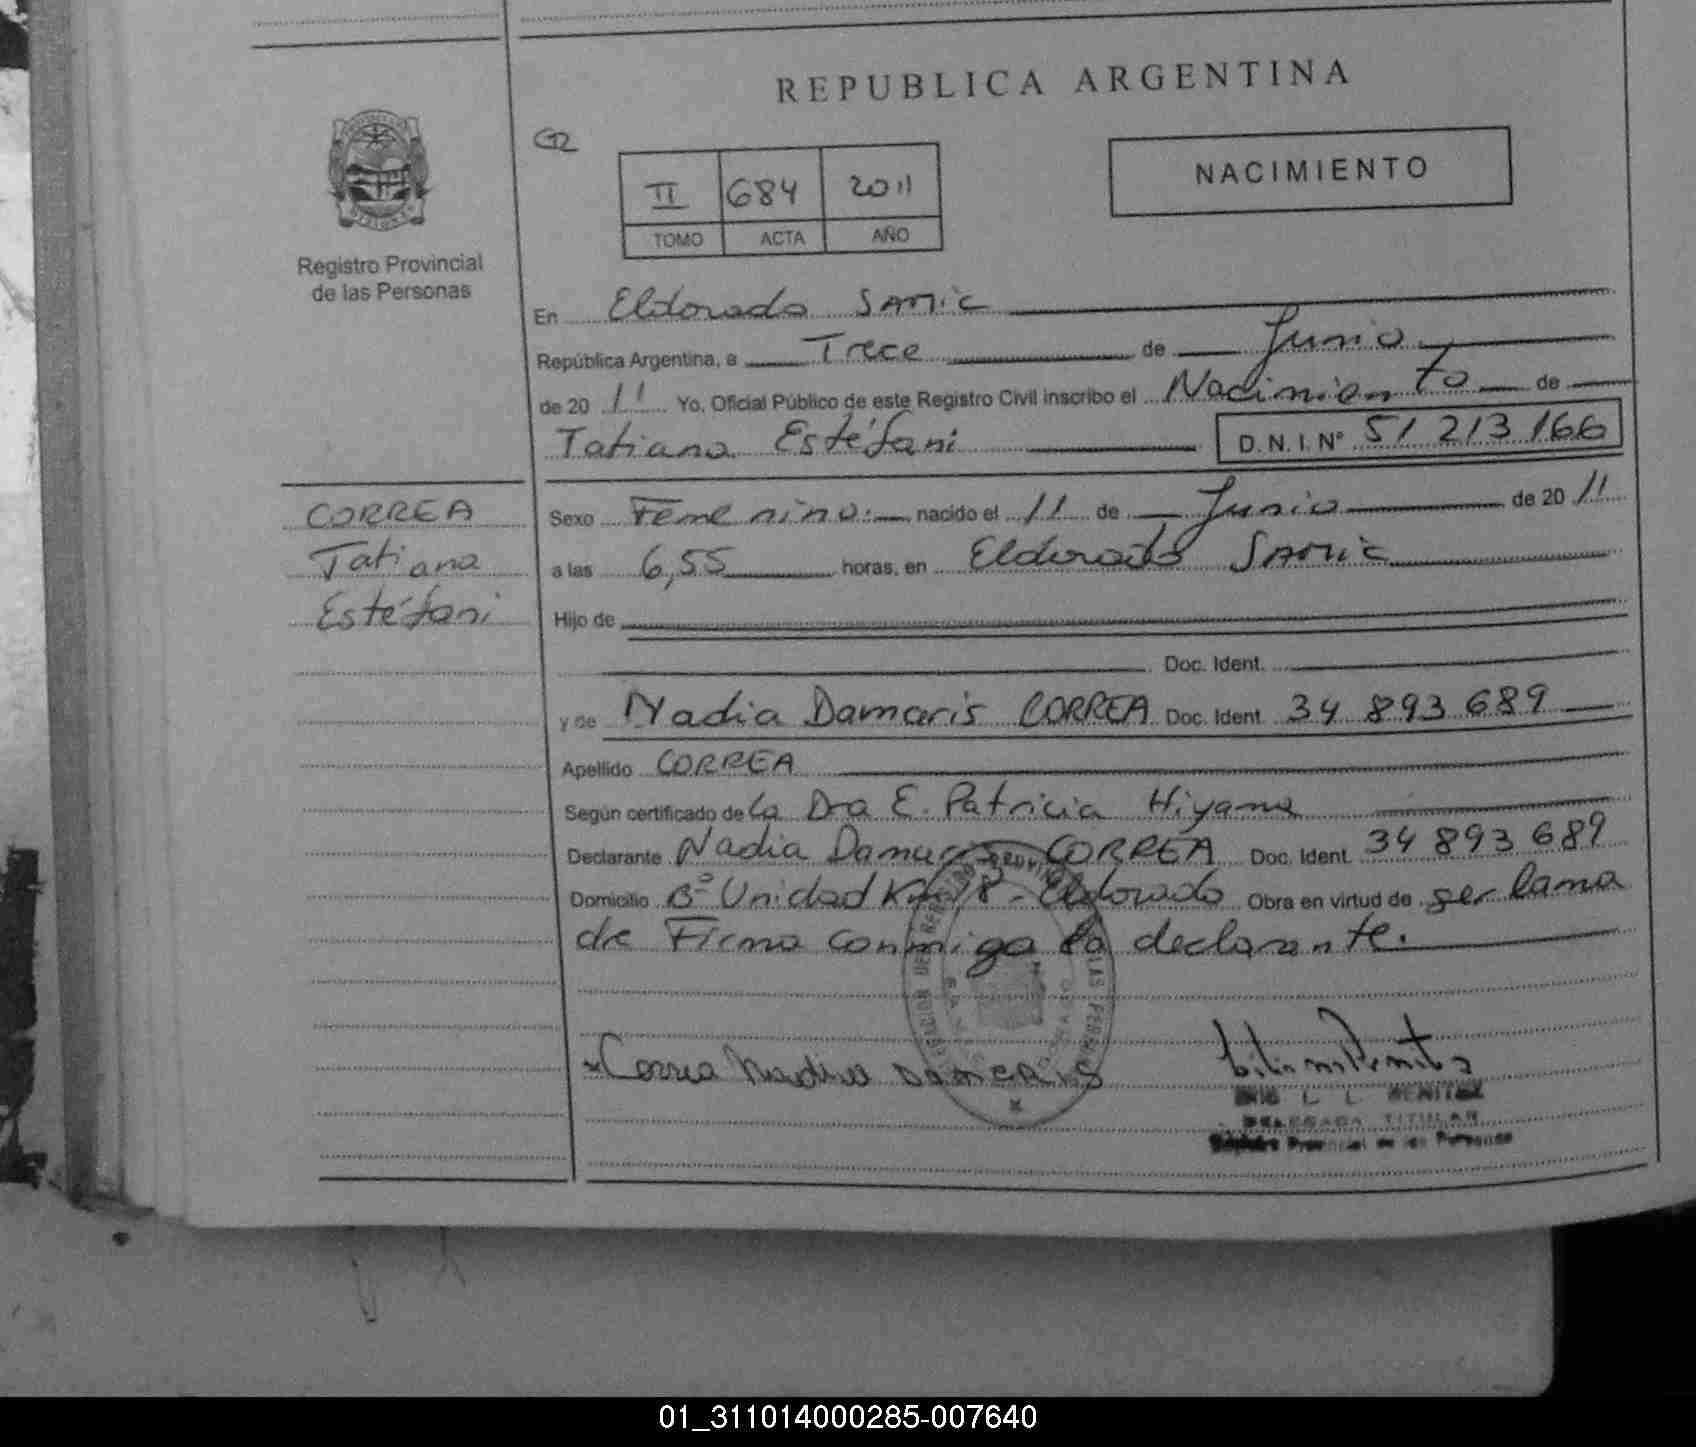 REPUBLICA ARGENTINA
NACIMIENTO
II 684 2011
TOMO ACTA AÑO
Registro Provincial
de las Personas
En Eldorado SAMIC
República Argentina, a Trece de Junio
de 20 11 Yo, Oficial Público de este Registro Civil inscribo el Nacimiento de
Tatiana Estéfani D. N. I. N° 51 213 166
CORREA
Tatiana
Estéfani
Sexo Femenino. nacido el 11 de Junio de 20 11
a las 6,55 horas, en Eldorado SAMIC
Hijo de
Doc. Ident.
y de Nadia Damaris CORREA Doc. Ident. 34 893 689
Apellido CORREA
Según certificado de la Dra E. Patricia Hiyama
Declarante Nadia Damaris CORREA Doc. Ident. 34 893 689
Domicilio Bº Unidad Km 8 - Eldorado Obra en virtud de ser la ma
dre Firma conmigo la declarante.
Correa Nadia DAMARIS
L. L. BENITEZ
DELEGADA TITULAR
Registro Provincial de las Personas
01_311014000285-007640